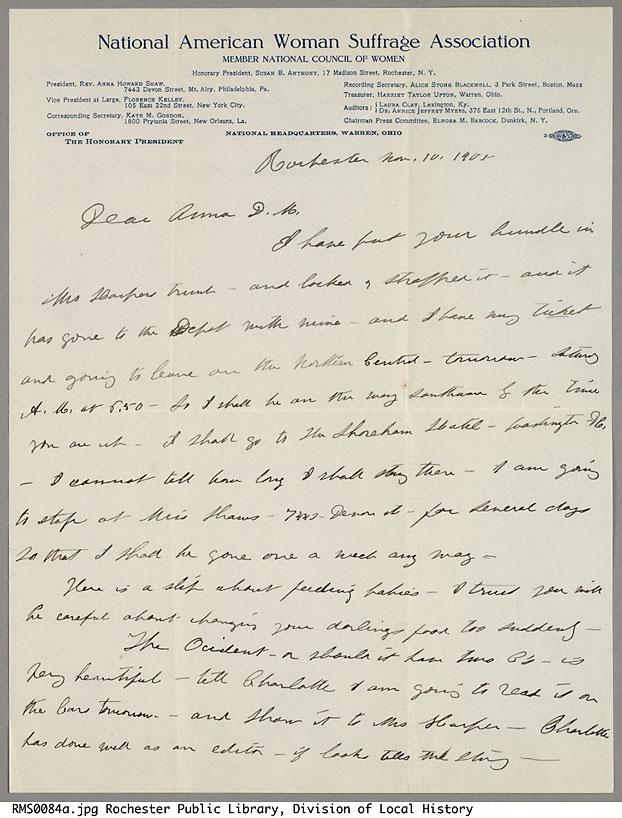 National American Woman Suffrage Association
MEMBER NATIONAL COUNCIL OF WOMEN
Honorary President, SUSAN B. ANTHONY, 17 Madison Street, Rochester, N. Y.
President, REV. ANNA HOWARD SHAW,
7443 Devon Street, Mt. Airy, Philadelphia, Pa.
Vice President at Large, FLORENCE KELLEY,
105 East 22nd Street, New York City.
Corresponding Secretary, KATE M. GORDON,
1800 Prytania Street, New Orleans, La.
Recording Secretary, ALICE STONE BLACKWELL, 3 Park Street, Boston, Mass
Treasurer, HARRIET TAYLOR UPTON, Warren, Ohio.
Auditors: { LAURA CLAY, Lexington, Ky.
DR. ANNICE JEFFREY MYERS, 375 East 12th St., N., Portland, Ore.
Chairman Press Committee, ELNORA M. BABCOCK, Dunkirk, N. Y.
OFFICE OF
THE HONORARY PRESIDENT
NATIONAL HEADQUARTERS, WARREN, OHIO
Rochester Nov. 10, 1905
Dear Anna D. M.
I have put your bundle in
Mrs Harpers trunk - and locked & strapped it - and it
has gone to the Depot with mine - and I have my ticket
and going to leave on the Northern Central - tomorrow -
A. M. at 8.50 - So I shall be on the way southward by the time
you are up - I shall go to The Shoreham Hotel - Washington D.C.
- I cannot tell how long I shall stay there - I am going
to stop at Miss Shaws - 7443 Devon st - for several days
so that I shall be gone over a week any way -
Here is a slip about feeding babies - I trust you will
be careful about changing your darlings food too suddenly -
The Ocident - or should it have two C's - is
very beautiful - tell Charlotte I am going to read it on
the Cars tomorrow - and show it to Mrs Harper - Charlotte
has done well as an editor - if looks tells the story -
RMS0084a.jpg Rochester Public Library, Division of Local History